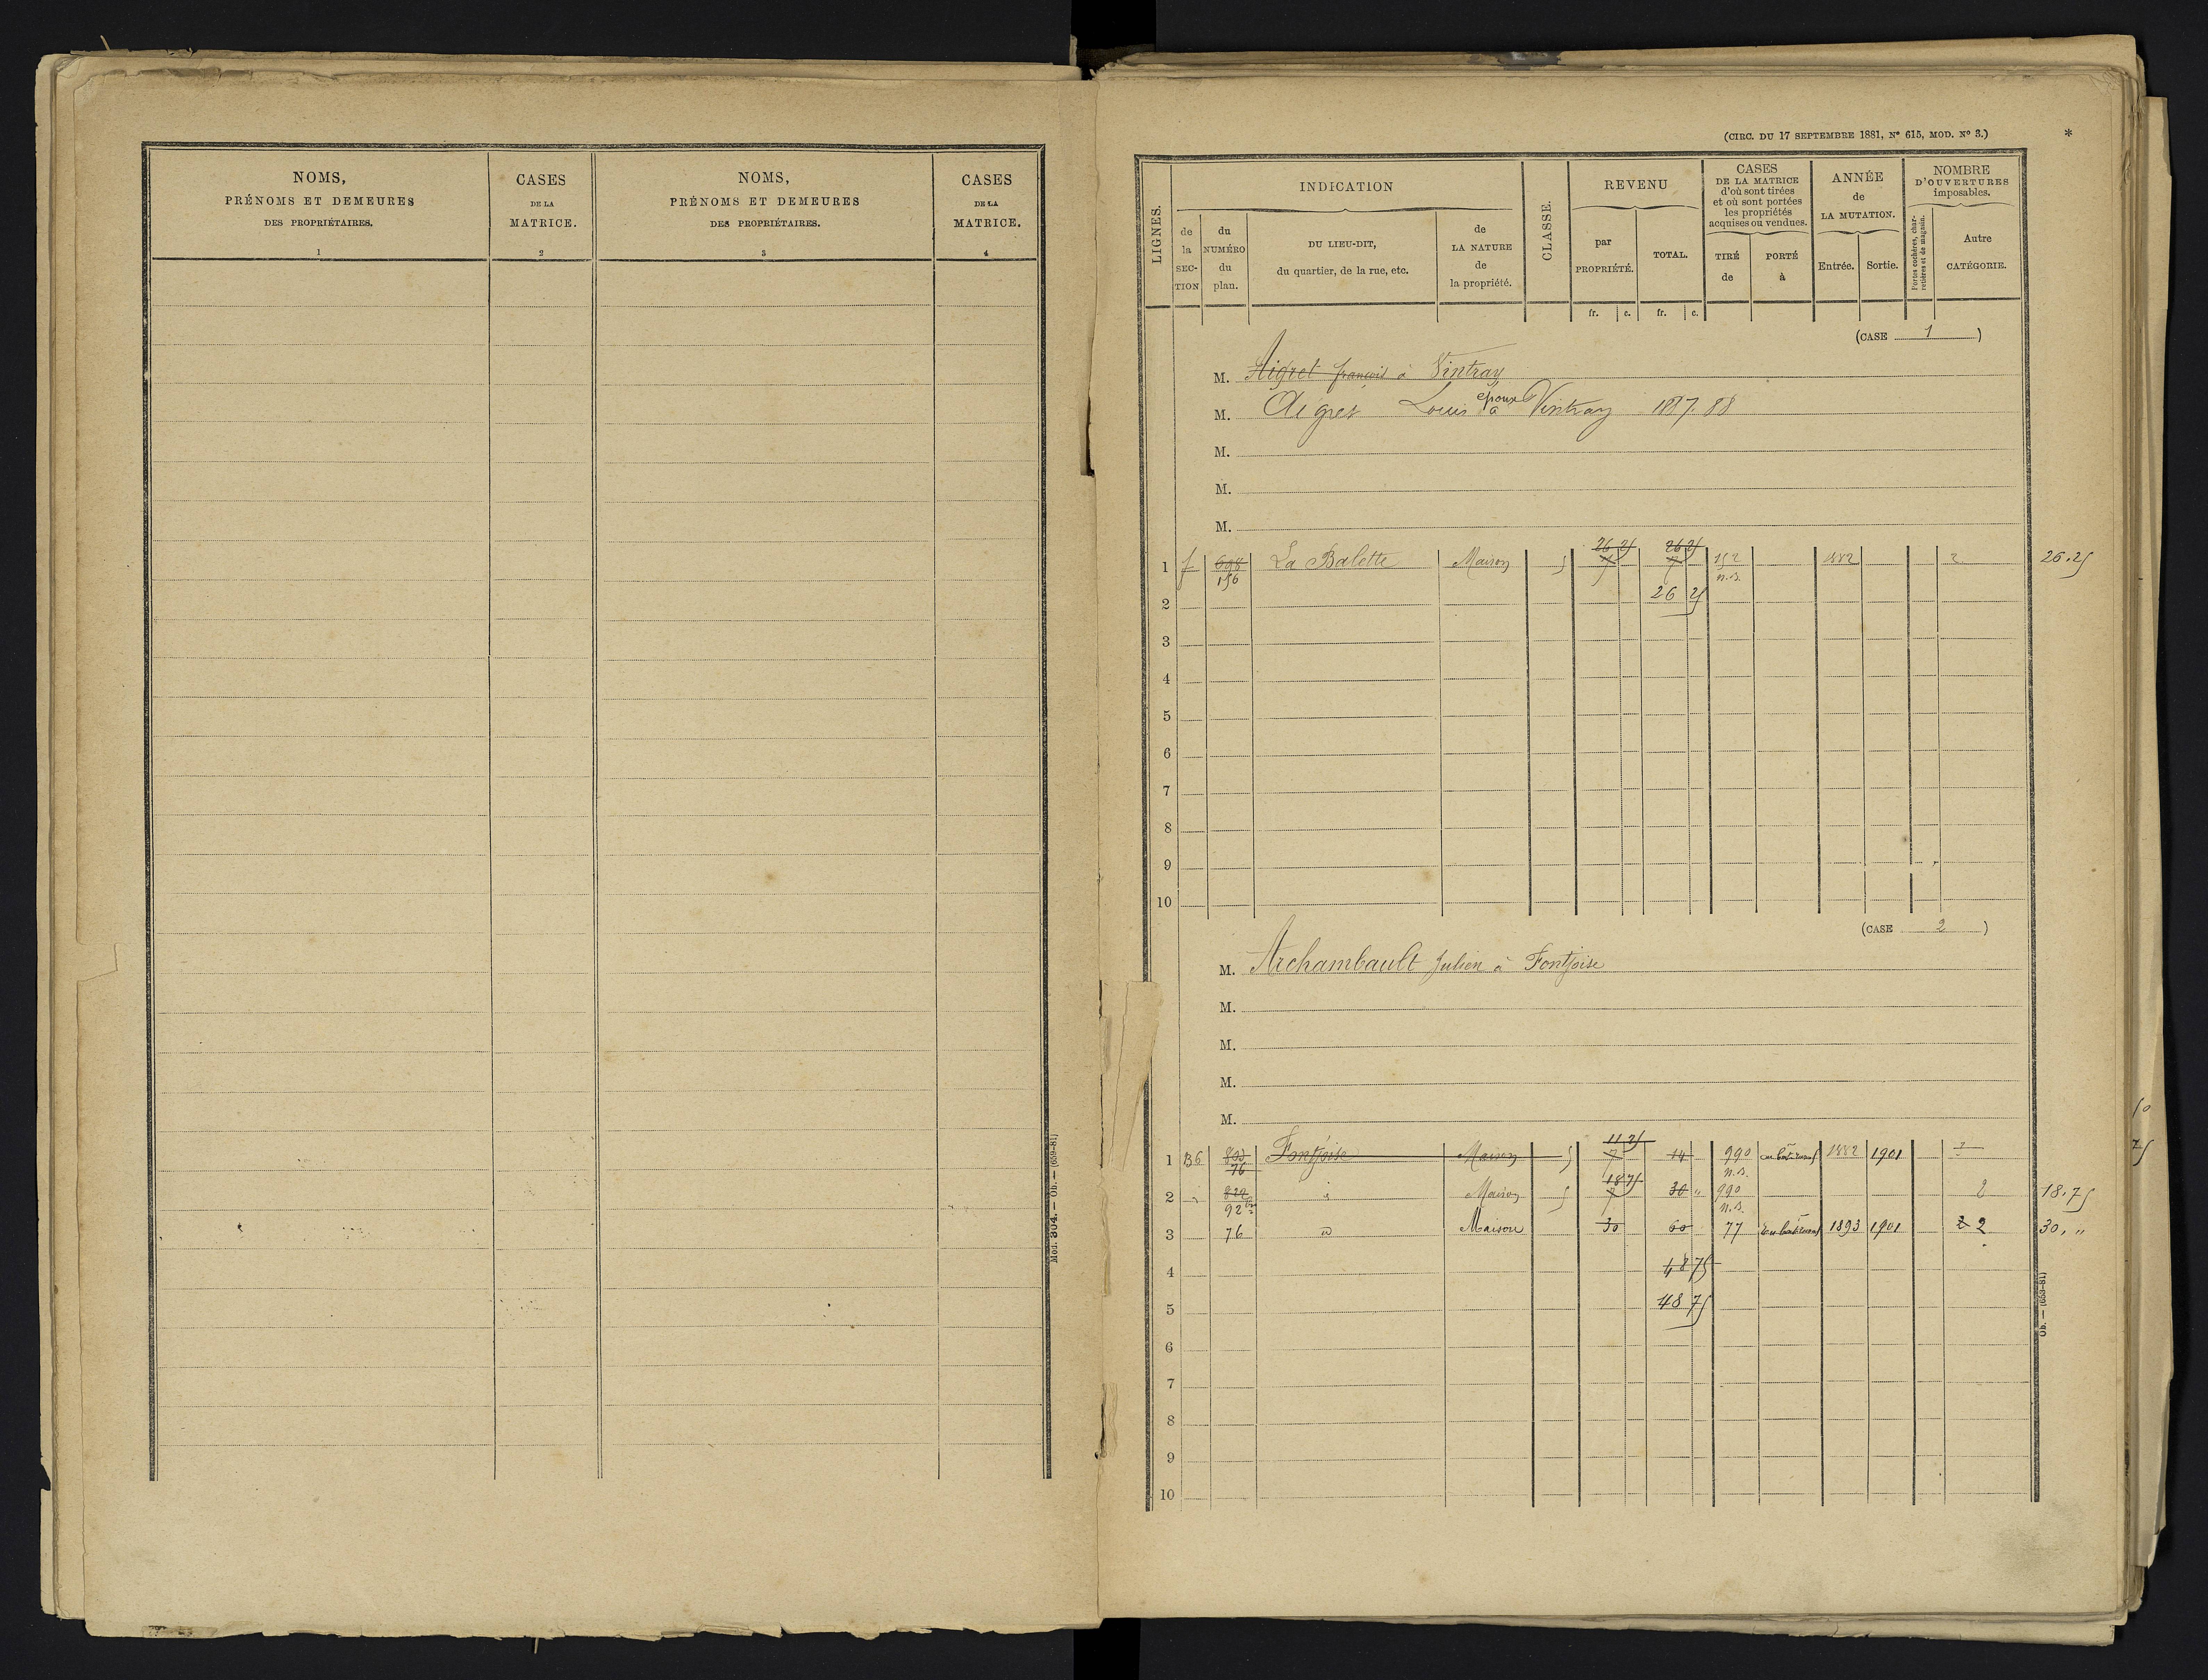 NOMS,
PRÉNOMS ET DEMEURES
DES PROPRIÉTAIRES.
1
CASES
DE LA
MATRICE.
2
NOMS,
PRÉNOMS ET DEMEURES
DES PROPRIÉTAIRES.
3
CASES
DE LA
MATRICE.
4
Mod. 304. — Ob. — (659-81)
(CIRC. DU 17 SEPTEMBRE 1881, N° 615, MOD. N° 3.) *
LIGNES.
INDICATION
de la SECTION
du NUMÉRO du plan.
DU LIEU-DIT,
du quartier, de la rue, etc.
de LA NATURE de la propriété.
CLASSE.
REVENU
par PROPRIÉTÉ.
TOTAL.
CASES
DE LA MATRICE
d'où sont tirées
et où sont portées
les propriétés
acquises ou vendues.
TIRÉ de
PORTÉ à
ANNÉE
de
LA MUTATION.
Entrée. Sortie.
NOMBRE
D'OUVERTURES
imposables.
Portes cochères, charretières et de magasin.
Autre CATÉGORIE.
fr. c. fr. c.
(CASE 1)
M. Aigret françois à Vintray
M. Aigret Louis époux à Vintray 1887.88
M.
M.
M.
26 25 26 25
1 f 698 La Balette Maison 5 7 7 152 1882 2 26.25
156 n.s.
2 26 25
3
4
5
6
7
8
9
10
(CASE 2)
M. Archambault Julien à Fontjoise
M.
M.
M.
M.
11 25
1 B6 Fontjoise Maison 5 7 14 990 1882 1901
76 n.s.
18 75
2 Maison 5 7 30 " 990 2 18.75
92 bis n.s.
3 76 id Maison 30 60 77 1893 1901 2 2 30, "
4 48 75
5 48 75
6
7
8
9
10
Ob. — (653-81)